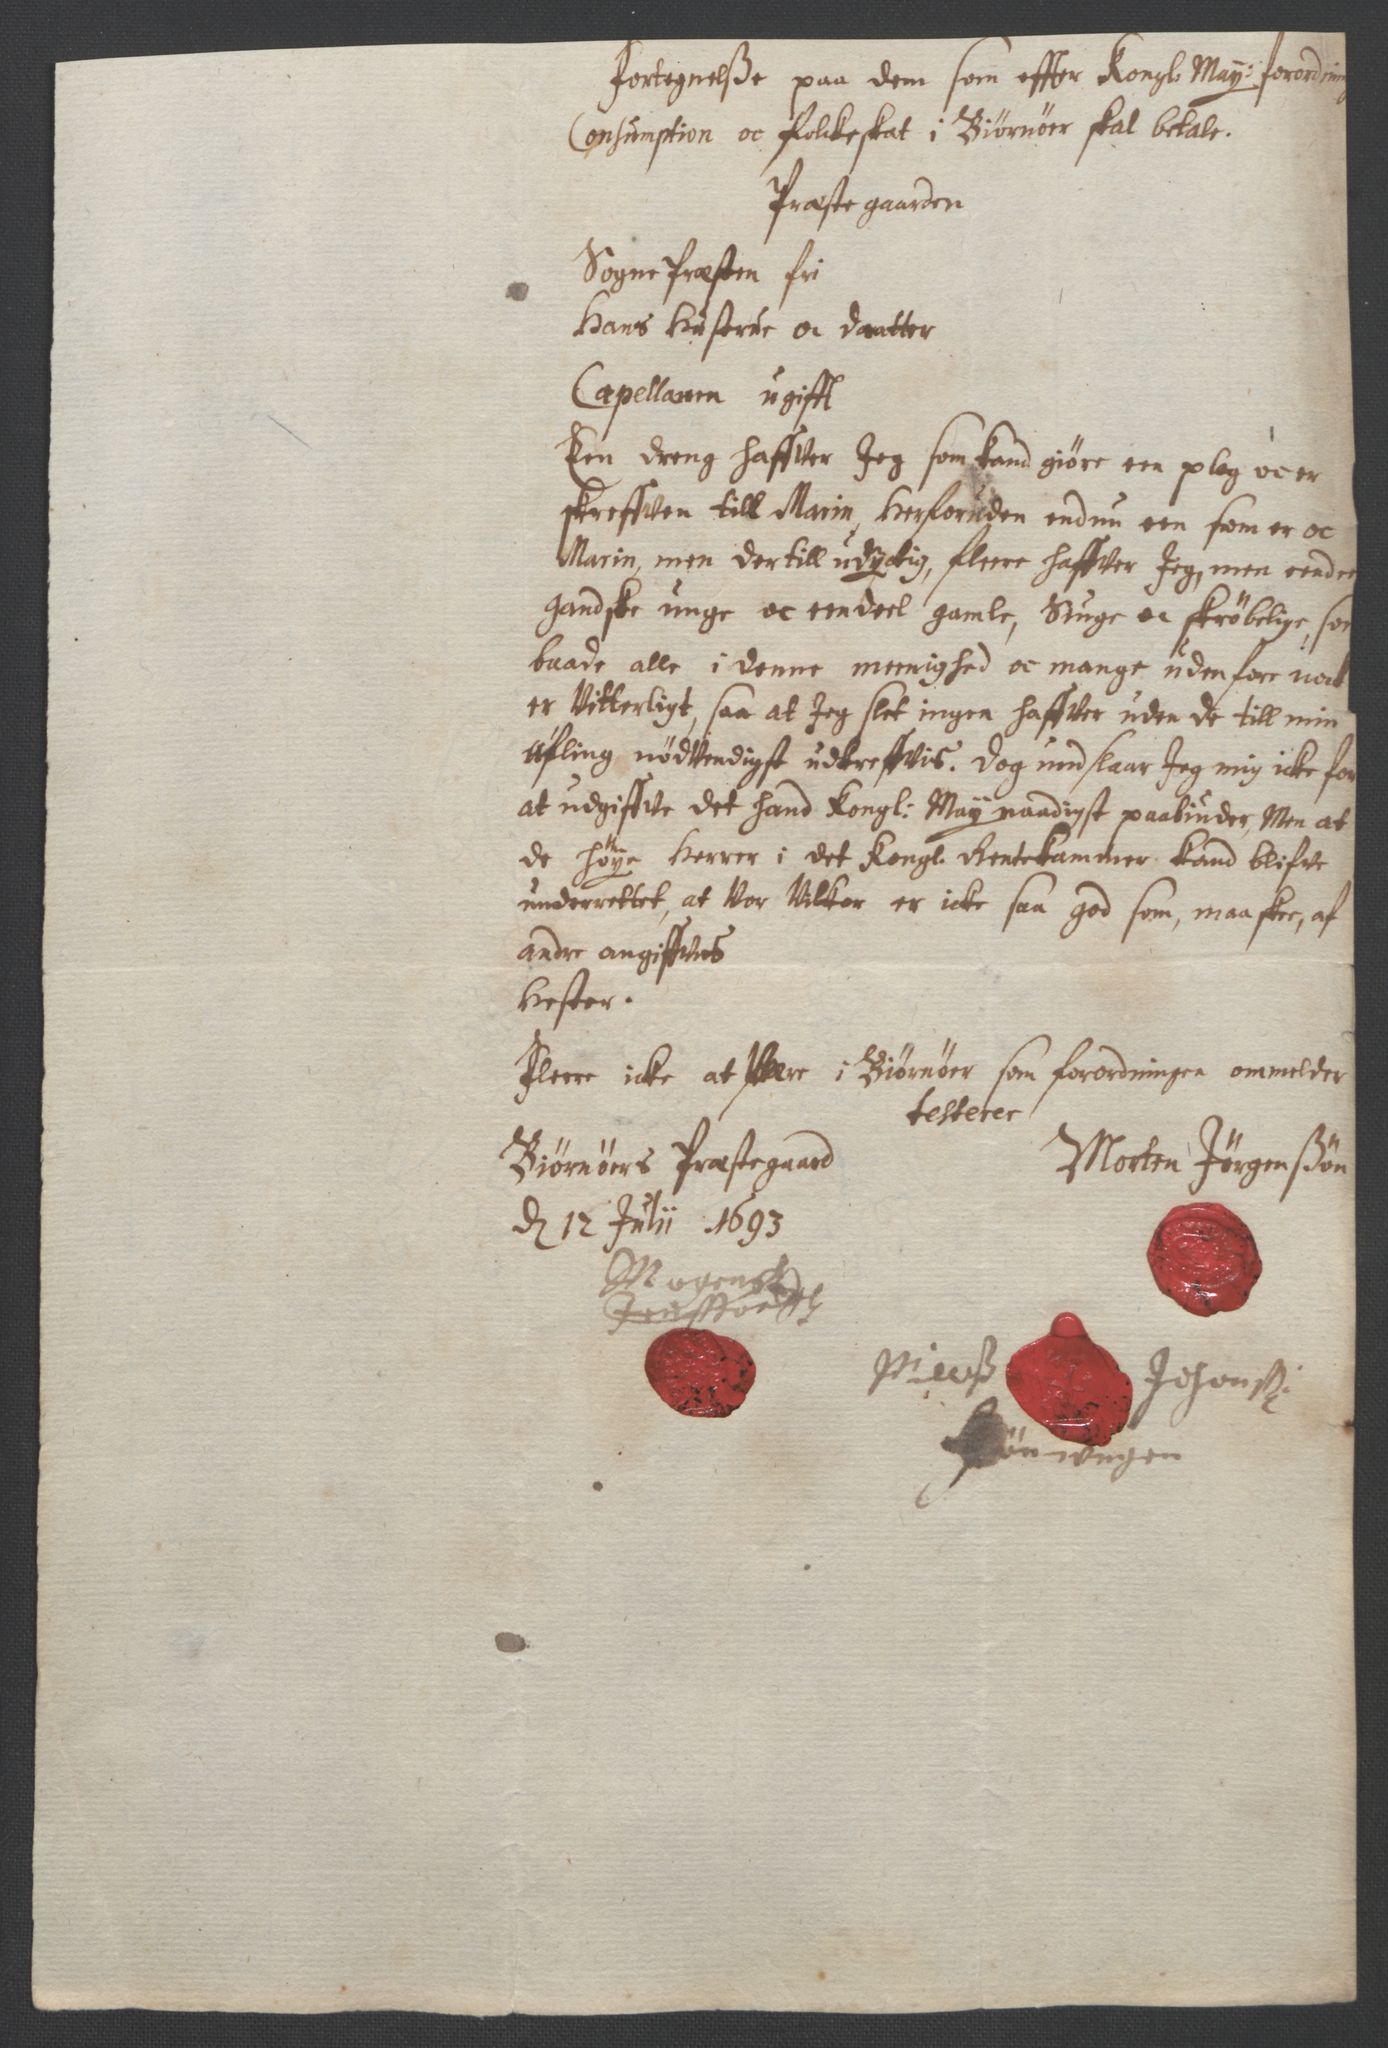 Fortegnelsse paa dem som effter Kongl: May: forordning
Consumption oc folckeskat i Biörnöer skal betale.
Præstegaarden
Sogne Præsten fri
Hans Hustrue oc daatter
Capellanen ugifft
Een dreng haffver Jeg som kand giöre een plog oc er
skreffven till Marin, Herforuden endnu een som er oc
Marin, men dertill udyctig, fleere haffver Jeg, men eendee
gandske unge oc eendeel gamle, Siuge oc skröbelige, som
baade alle i denne meenighed oc mange udenfore nok
er Vitterligt, saa at Jeg slet ingen haffver uden de till min
afling nödvendigst udkreffvis. Dog undslaar Jeg mig icke for
at udgiffve det hand Kongl: May naadigst paabiuder, Men at
de höye Herrer i det Kongl. Rentekammer kand blifve
underrettet, at Vor Vilkor er icke saa god som, maaskee, af
andre angiffves
Hester.
Fleere icke at Være i Biörnöer som forordningen ommelder
testerer
Biörnöers Præstegaard Morten Jörgenssön
d 12 Julii 1693
Mogens
Nielss Johanss: